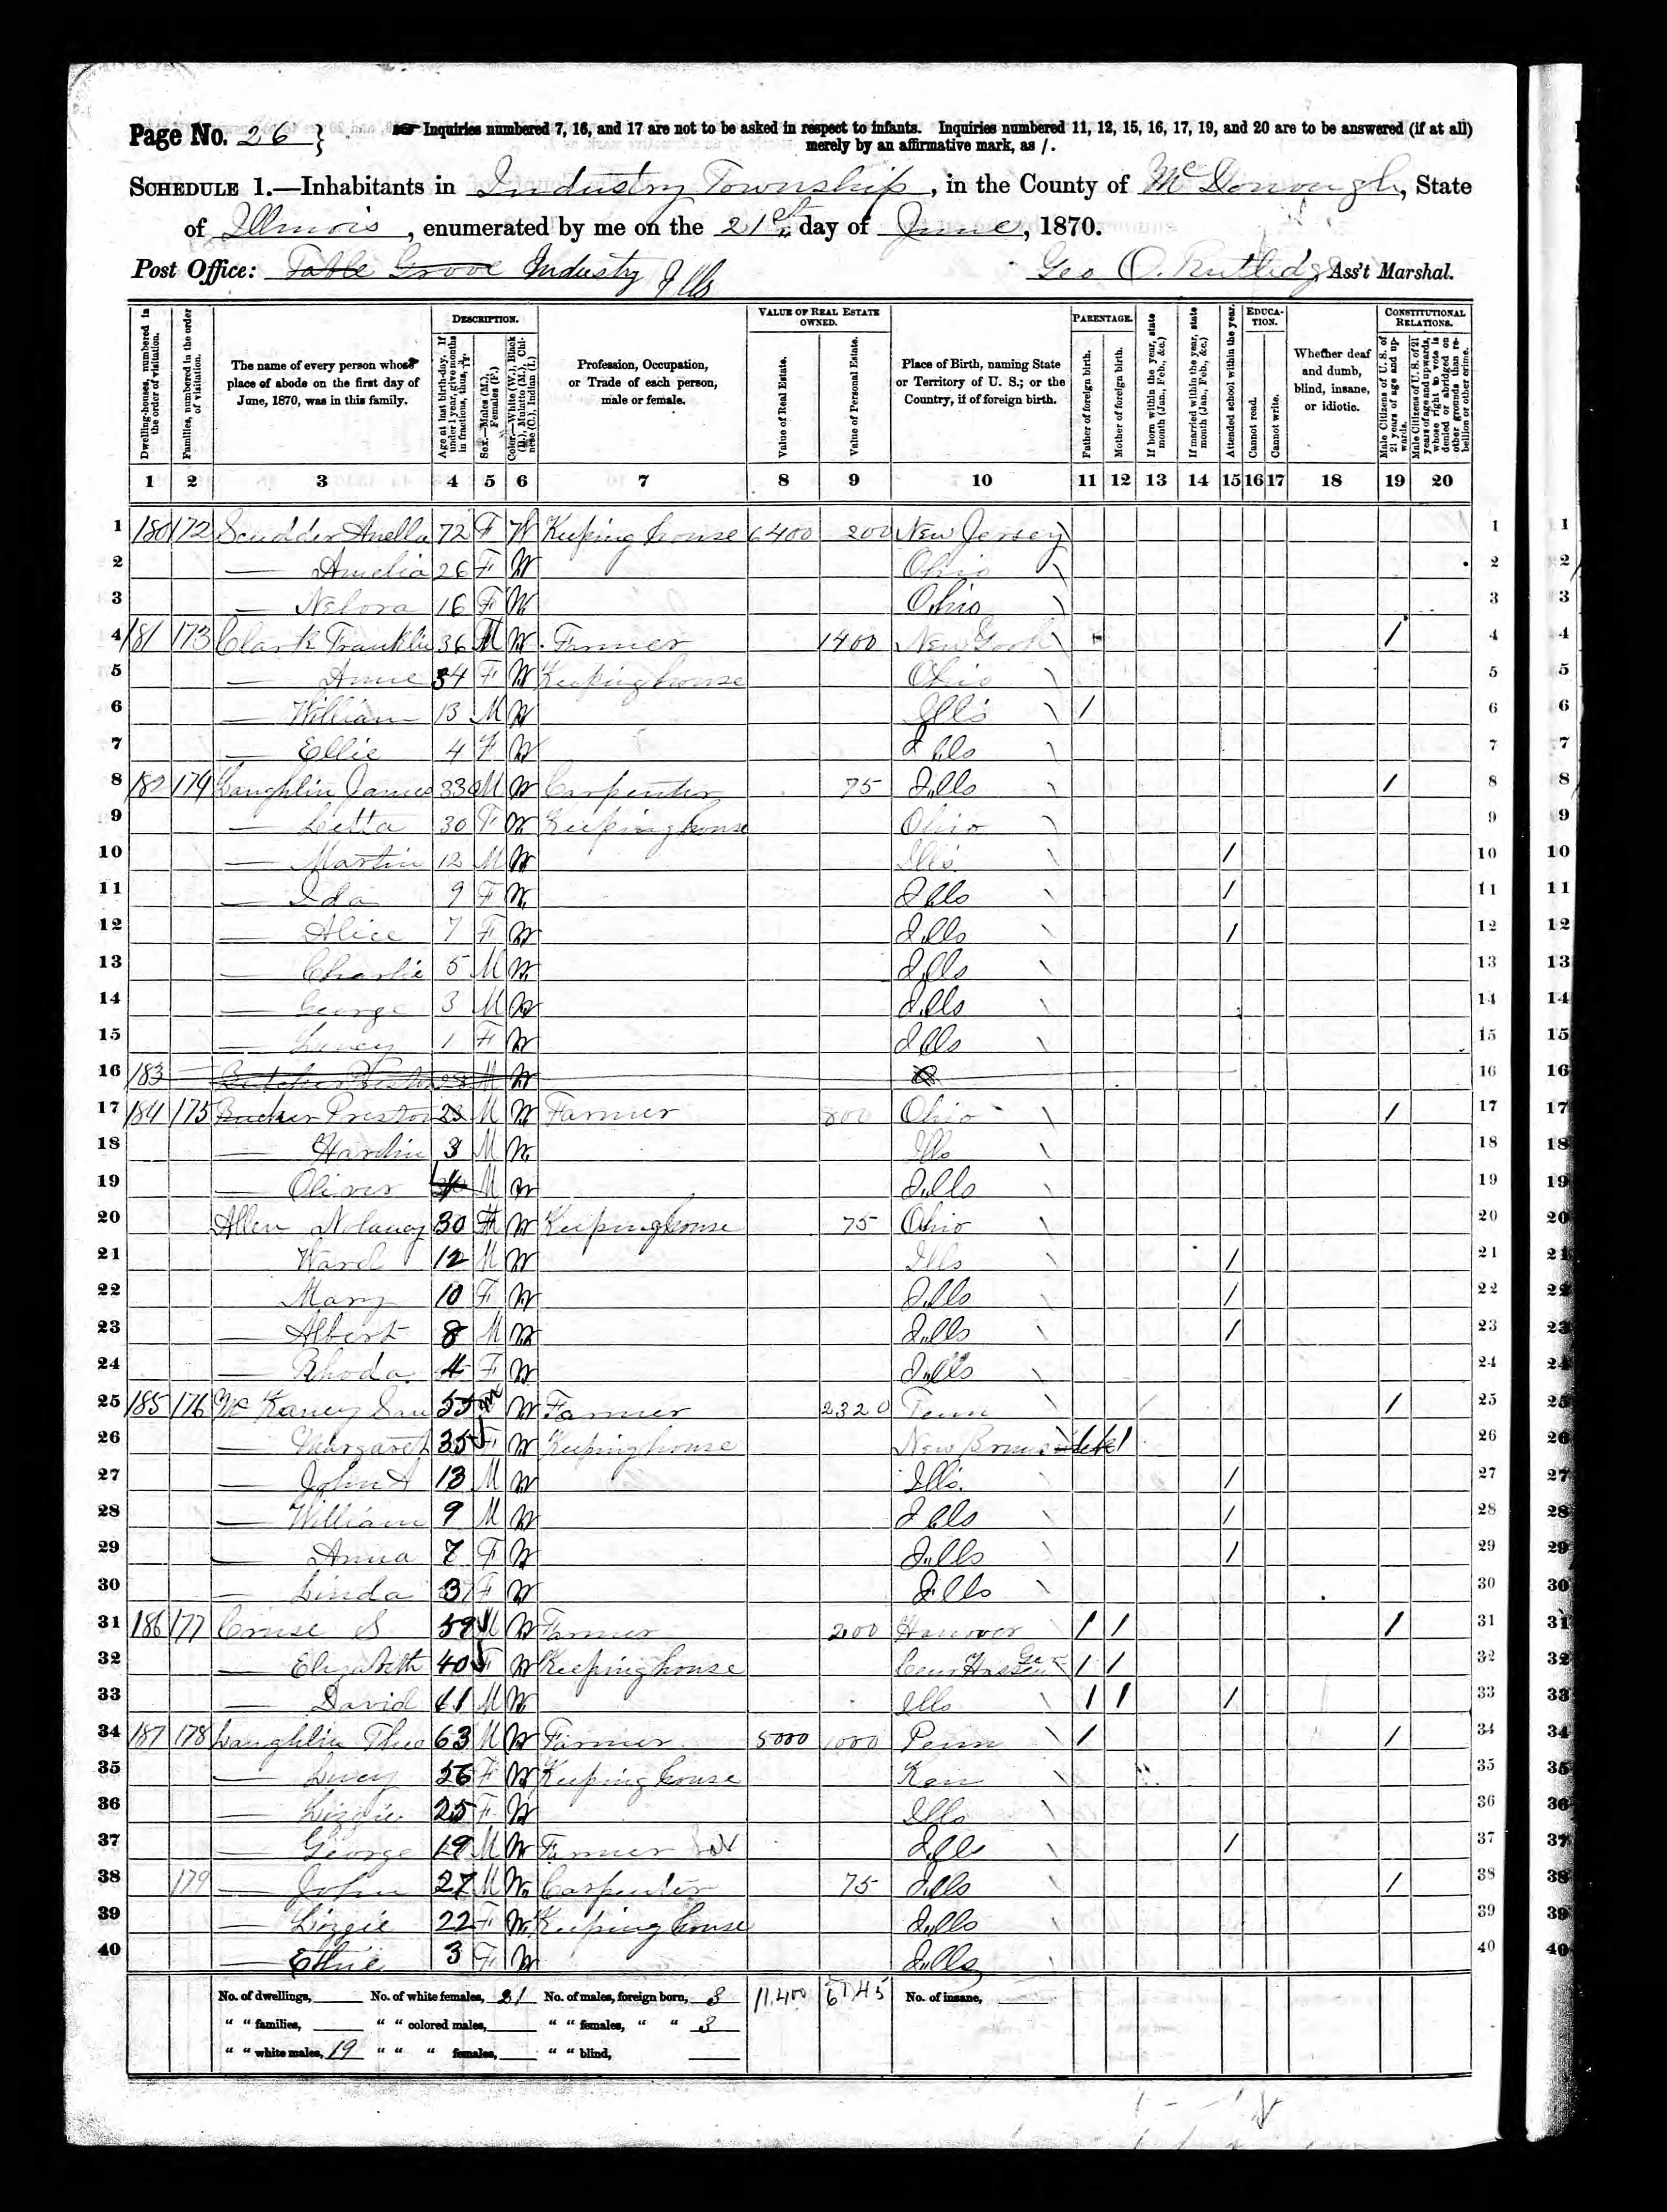 Page No. 26 } Inquiries numbered 7, 16, and 17 are not to be asked in respect to infants. Inquiries numbered 11, 12, 15, 16, 17, 19, and 20 are to be answered (if at all)
merely by an affirmative mark, as /.
SCHEDULE 1.—Inhabitants in Industry Township, in the County of McDonough, State
of Illinois, enumerated by me on the 21st day of June, 1870.
Post Office: Table Grove Industry Ills Geo O. Rutledge, Ass't Marshal.
Dwelling-houses, numbered in the order of visitation.
Families, numbered in the order of visitation.
The name of every person whose place of abode on the first day of June, 1870, was in this family.
DESCRIPTION.
Age at last birth-day. If under 1 year, give months in fractions, thus, 3/12.
Sex.—Males (M.), Females (F.)
Color.—White (W.), Black (B.), Mulatto (M.), Chinese (C.), Indian (I.)
Profession, Occupation, or Trade of each person, male or female.
VALUE OF REAL ESTATE OWNED.
Value of Real Estate.
Value of Personal Estate.
Place of Birth, naming State or Territory of U. S.; or the Country, if of foreign birth.
PARENTAGE.
Father of foreign birth.
Mother of foreign birth.
If born within the year, state month (Jan., Feb., &c.)
If married within the year, state month (Jan., Feb., &c.)
Attended school within the year.
EDUCATION.
Cannot read.
Cannot write.
Whether deaf and dumb, blind, insane, or idiotic.
CONSTITUTIONAL RELATIONS.
Male Citizens of U. S. of 21 years of age and upwards.
Male Citizens of U. S. of 21 years of age and upwards, whose right to vote is denied or abridged on other grounds than rebellion or other crime.
1 2 3 4 5 6 7 8 9 10 11 12 13 14 15 16 17 18 19 20
1 180 172 Scudder Anella 72 F W Keeping house 6400 200 New Jersey 1
2 — Amelia 26 F W Ohio 2
3 — 16 F W Ohio 3
4 181 173 Clark Franklin 36 M W Farmer 1400 New York / 4
5 — Anne 34 F W Keeping house Ohio 5
6 — William 13 M W Ills / 6
7 — Ellie 4 F W Ills 7
8 182 174 Laughlin James 33 M W Carpenter 75 Ills / 8
9 — Letta 30 F W Keeping house Ohio 9
10 — Martin 12 M W Ills / 10
11 — Ida 9 F W Ills / 11
12 — Alice 7 F W Ills / 12
13 — Charlie 5 M W Ills 13
14 — George 3 M W Ills 14
15 — Lucy 1 F W Ills 15
16 183 — M W 16
17 184 175 Preston 23 M W Farmer 800 Ohio / 17
18 — Hardin 3 M W Ills 18
19 — Oliver M W Ills 19
20 Allen 30 F W Keeping house 75 Ohio 20
21 Ward 12 M W Ills / 21
22 Mary 10 F W Ills / 22
23 — Albert 8 M W Ills / 23
24 — Rhoda 4 F W Ills 24
25 185 176 55 M W Farmer 2320 Tenn / 25
26 — Margaret 35 F W Keeping house New Brunswick / 26
27 — John A 13 M W Ills / 27
28 — William 9 M W Ills / 28
29 — Anna 7 F W Ills / 29
30 — Linda 3 F W Ills 30
31 186 177 Cruse S 59 M W Farmer 200 Hanover / / / 31
32 — Elizabeth 40 F W Keeping house / / 32
33 — David 11 M W Ills / / / 33
34 187 178 Laughlin Thos 63 M W Farmer 5000 1000 Penn / / 34
35 — Lucy 56 F W Keeping house Ken 35
36 — Lizzie 25 F W Ills 36
37 — George 19 M W Farmer Ills / 37
38 179 — John 27 M W Carpenter 75 Ills / 38
39 — Lizzie 22 F W Keeping house Ills 39
40 — Effie 3 F W Ills 40
No. of dwellings, No. of white females, 21 No. of males, foreign born, 3 11,400 6145 No. of insane,
" " families, " " colored males, " " females, " " 3
" " white males, 19 " " " females, " " blind,